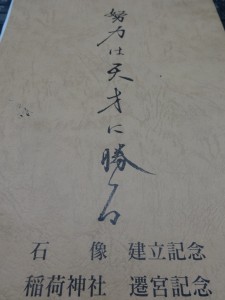 努力は天才に勝る
石像 建立記念
稲荷神社 遷宮記念